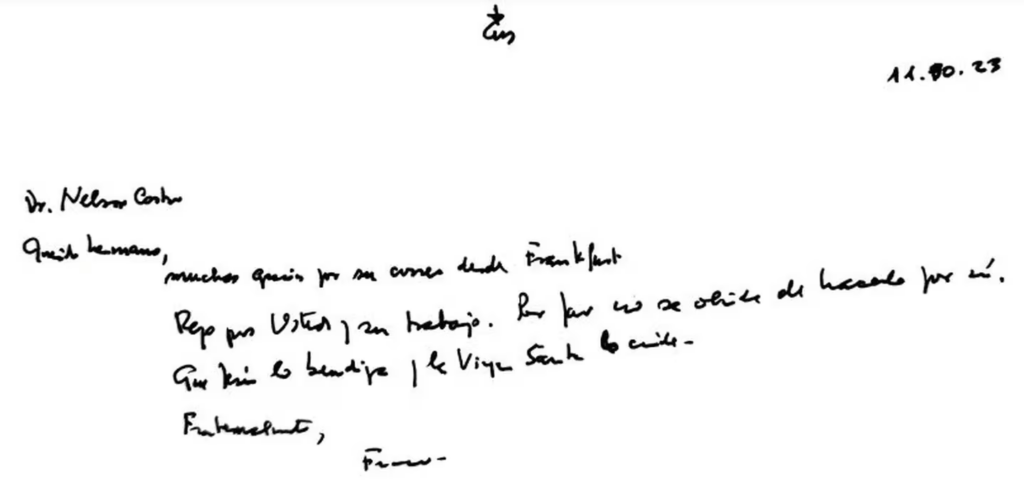 11.10.23
Dr. Nelson Castro
Querido hermano,
muchas gracias por su correo desde Frankfurt
Rezo por Usted y su trabajo. Por favor no se olvide de hacerlo por mí.
Que Jesús lo bendiga y la Virgen Santa lo cuide.
Fraternalmente,